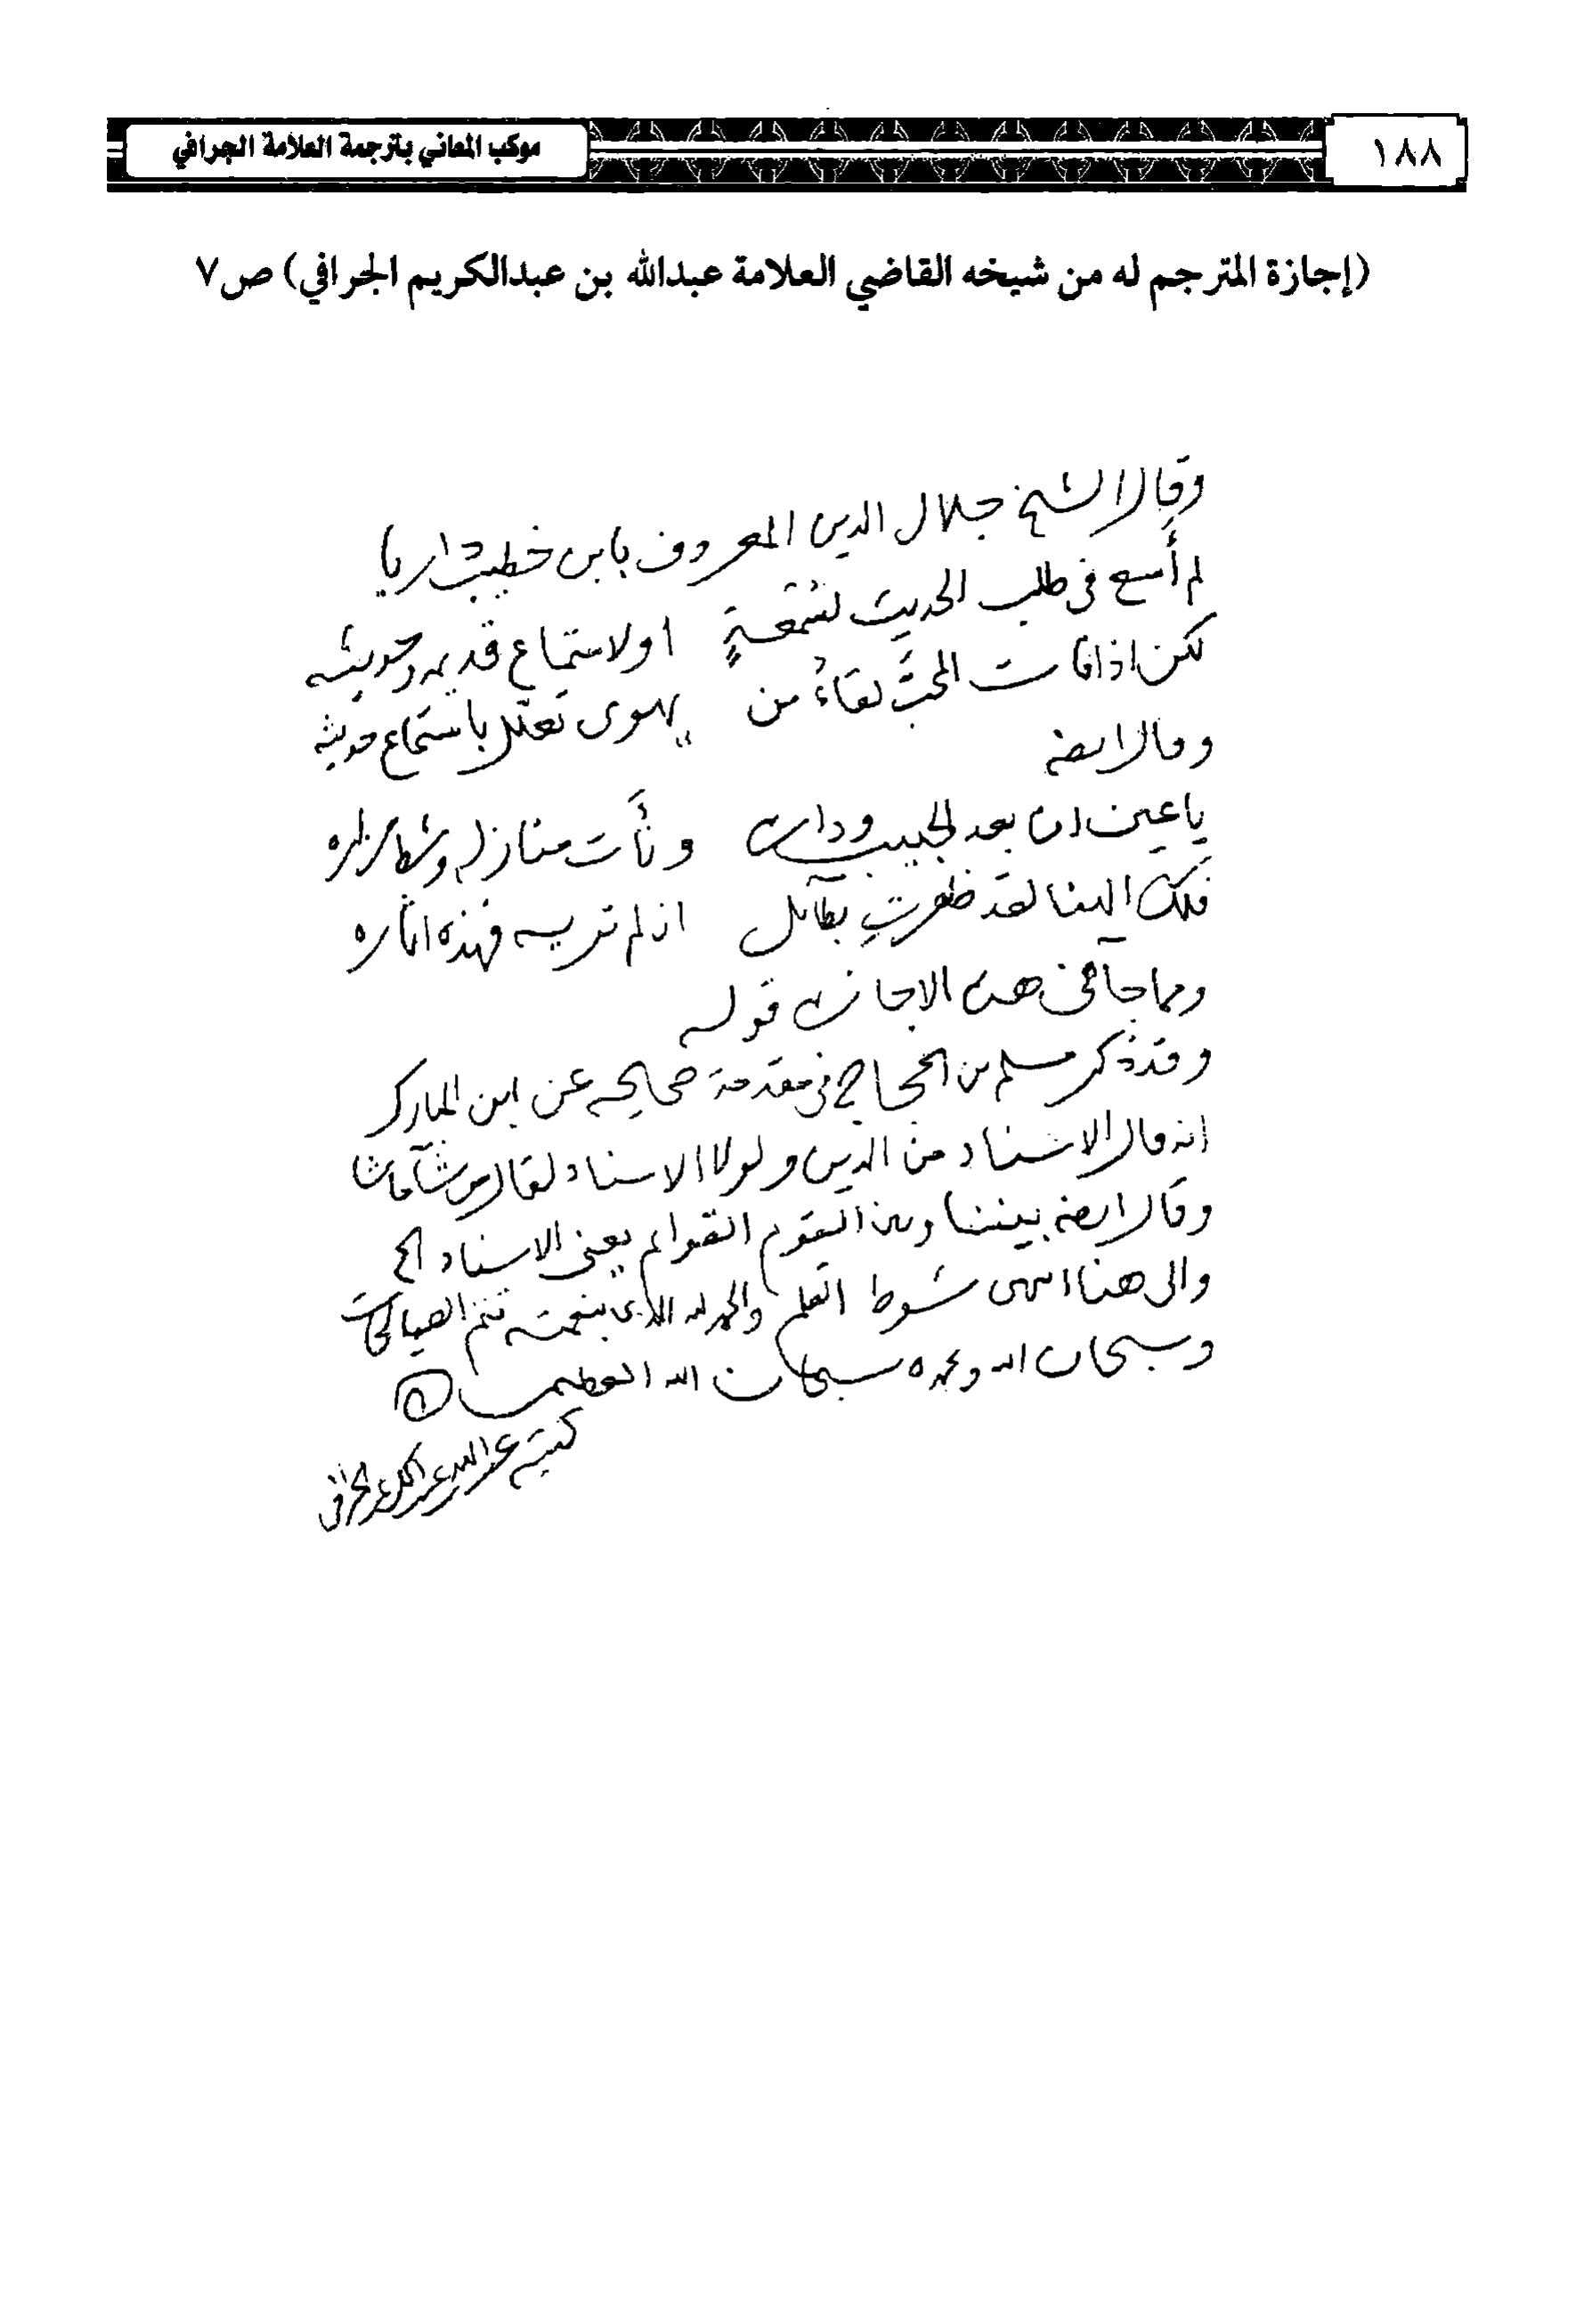 ١٨٨
موكب المعاني بترجمة العلامة الجرافي
(إجازة المترجم له من شيخه القاضي العلامة عبدالله بن عبدالكريم الجرافي) ص٧
وقال الشيخ جلال الدين المعروف بابن خطيب داريا
لم أسع في طلب الحديث لسُمعةٍ او لاستماع قديمه وحديثه
لكن اذا فات المحبَّ لقاءُ من يهوى تعلّل باستماع حديثه
وقال ايضه
يا عين ان بعد الحبيب وداره ونأت منازله وشط مزاره
فلك الهنا لقد ظفرتِ بطآئل ان لم تريه فهذه اثاره
ومما جآ في هذه الاجازه قوله
وقد ذكر مسلم بن الحجاج في مقدمة صحيحه عن ابن المبارك
انه قال الاسناد من الدين ولولا الاسناد لقال من شآ ما شا
وقال ايضه بيننا وبين القوم القوائم يعني الاسناد الخ
والى هنا انتهى شوط القلم والحمد لله الذي بنعمته تتم الصالحات
وسبحان الله وبحمده سبحان الله العظيم
كتبه عبدالله بن عبدالكريم الجرافي